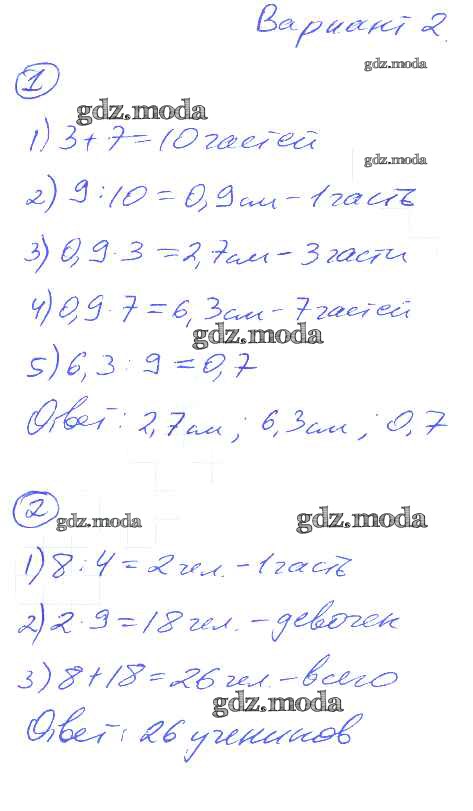 Вариант 2.
gdz.moda
1
gdz.moda
1) 3+7=10 частей
gdz.moda
2) 9:10=0,9 см - 1 часть
3) 0,9·3=2,7 см - 3 части
4) 0,9·7=6,3 см - 7 частей
gdz.moda
5) 6,3:9=0,7
Ответ: 2,7 см; 6,3 см; 0,7
2
gdz.moda gdz.moda
1) 8:4=2 чел. - 1 часть
2) 2·9=18 чел. - девочек
3) 8+18=26 чел. - всего
gdz.moda
Ответ: 26 учеников